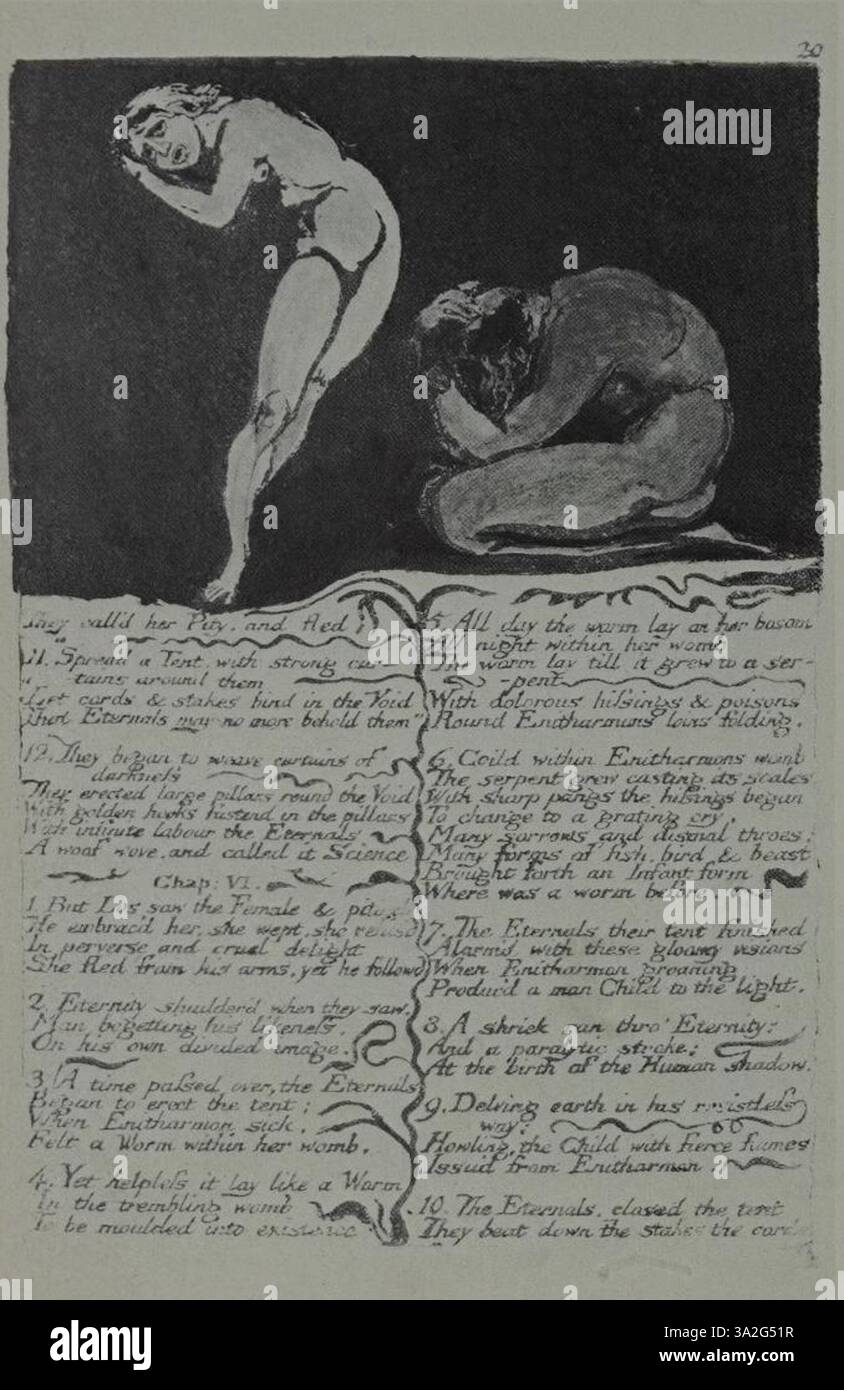 20
They call'd her Pity, and fled
11. Spread a Tent, with strong cur-
tains around them
Let cords & stakes bind in the Void
That Eternals may no more behold them"
12. They began to weave curtains of
darkneſs
They erected large pillars round the Void
With golden hooks fastend in the pillars
With infinite labour the Eternals
A woof wove, and called it Science
Chap: VI.
1. But Los saw the Female & pitied
He embrac'd her, she wept, she refus'd
In perverse and cruel delight
She fled from his arms, yet he followd
2. Eternity shudder'd when they saw,
Man begetting his likeneſs,
On his own divided image.
3. A time paſsed over, the Eternals
Began to erect the tent;
When Enitharmon sick,
Felt a Worm within her womb.
4. Yet helpleſs it lay like a Worm
In the trembling womb
To be moulded into existence
5. All day the worm lay on her bosom
All night within her womb
The worm lay till it grew to a ser-
-pent
With dolorous hiſsings & poisons
Round Enitharmons loins folding,
6. Coild within Enitharmons womb
The serpent grew casting its scales
With sharp pangs the hiſsings began
To change to a grating cry,
Many sorrows and dismal throes;
Many forms of fish, bird, & beast
Brought forth an Infant form
Where was a worm before.
7. The Eternals their tent finished
Alarm'd with these gloomy visions
When Enitharmon groaning
Produc'd a man Child to the light.
8. A shriek ran thro' Eternity:
And a paralytic stroke;
At the birth of the Human shadow.
9. Delving earth in his resistleſs
way;
Howling, the Child with fierce flames
Issu'd from Enitharmon.
10. The Eternals, closed the tent
They beat down the stakes the cords
alamy
a
alamy
Image ID: 3A2G51R
www.alamy.com